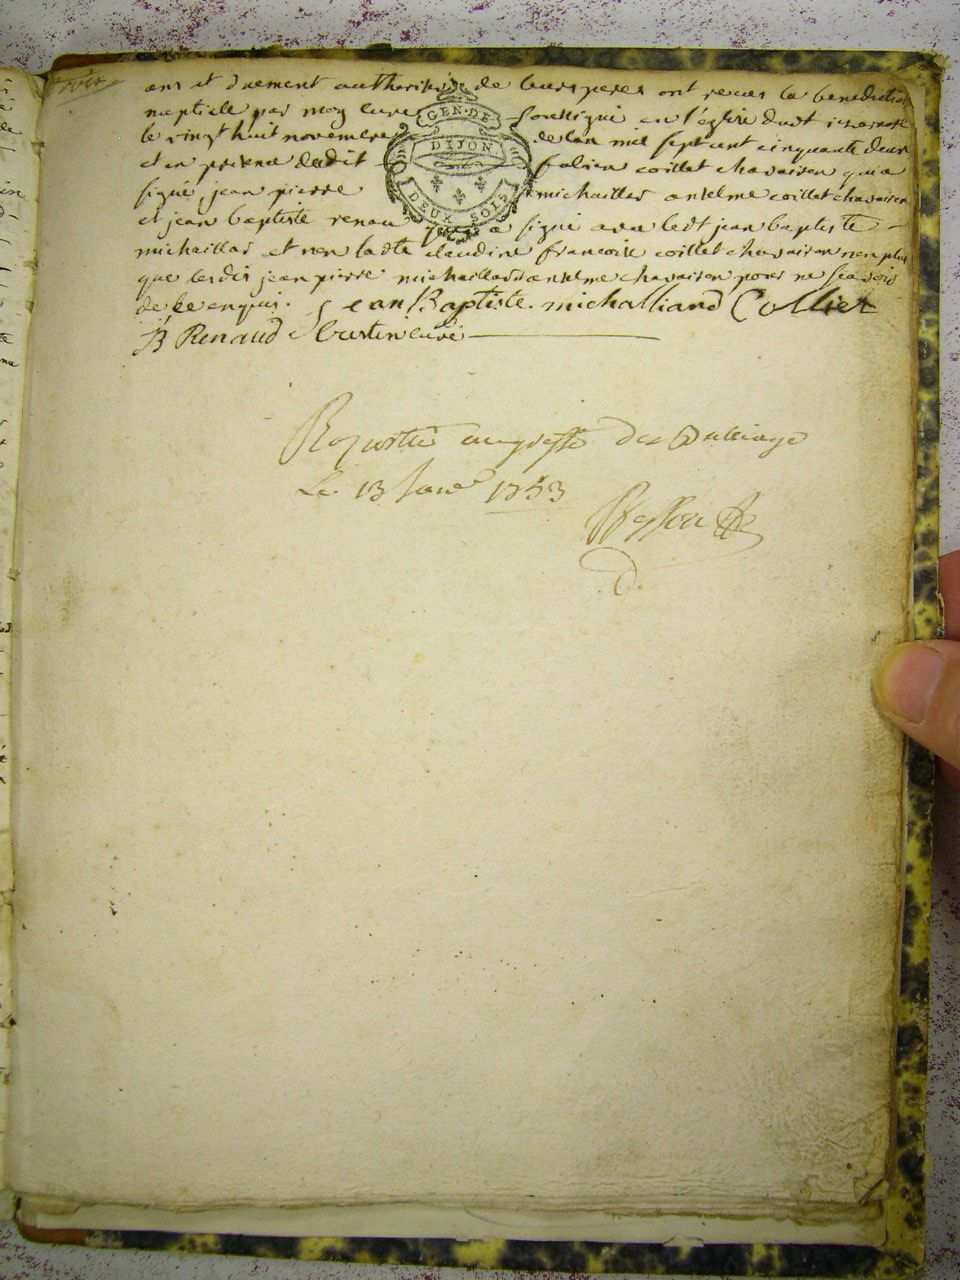 ans et duement authorisés de leurs peres ont recus la benediction
nuptialle par moy curé soussigné en l'église dudt izernore
le vingt huit novembre de lan mil sept cent cinquante deux
et en presence dudit fabien coillet chavaisen qui a
signé, jean pierre michaillas anselme coillet chavaisen
et jean baptiste renau qui a signé avec ledt jean baptiste
michaillas et non ladte claudine francoise coillet chavaisen non plus
que lesdts jean pierre michaillas anselme chavaisen pour ne scavoir
de ce enquis. Jean Baptiste. michalliand Colliet
JB Renaud curé
GEN. DE
DIJON
DEUX SOLS
Raporté au greffe
Le 13 Janer 1753